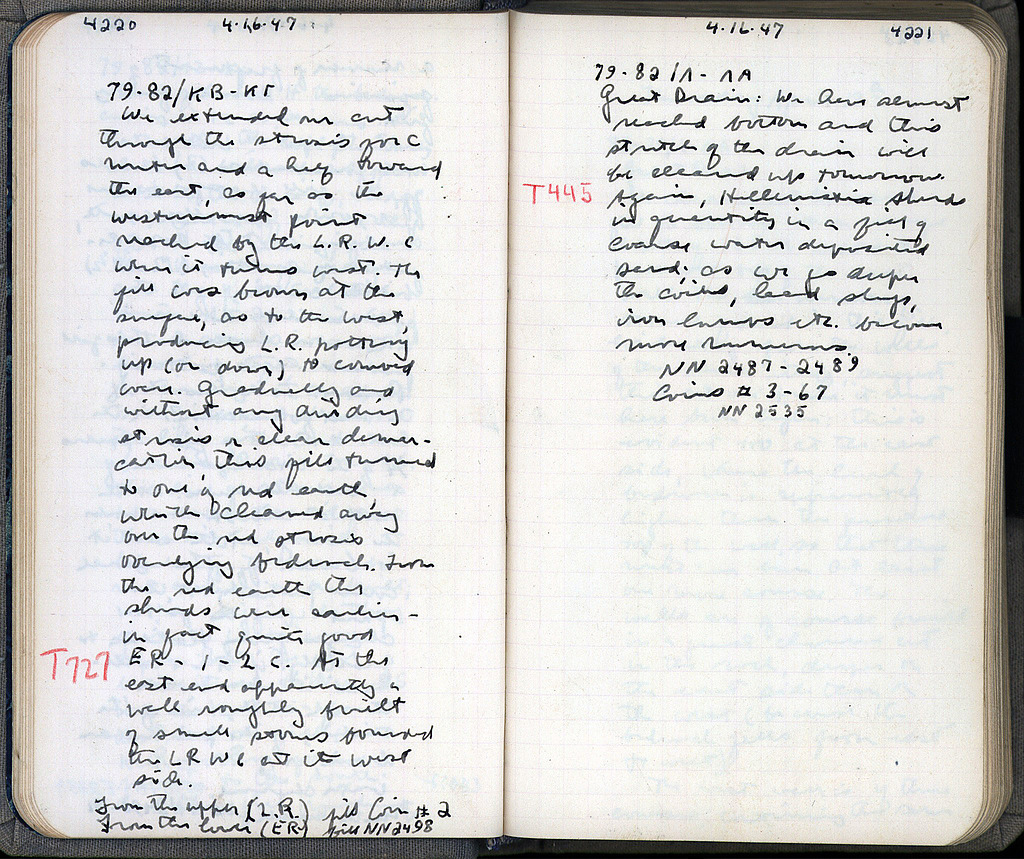 4220
4.16.47
79-82/ΚΒ-ΚΓ
We extended our cut
through the strosis for c
meter and a half toward
the east, as far as the
westernmost point
reached by the L.R.W.C
when it turns west. The
fill was brown at the
surface, as to the west,
producing L.R. pottery
up (or down) to combed
ware. Gradually and
without any dividing
strosis or clear demar-
cation this fill turned
to one of red earth,
which cleared away
over the red strosis
overlying bedrock. From
the red earth the
sherds were earlier -
in fact quite good
T727
ER - 1-2 C. At the
east end apparently a
wall roughly built
of small stones bounded
the LRWC at its west
side.
From the upper (L.R.) fill Coin # 2
From the lower (ER) fill NN2498
4.16.47
4221
79-82/Λ-ΛΑ
Great Drain: We have almost
reached bottom and this
stretch of the drain will
be cleared up tomorrow.
T445
Again, Hellenistic sherds
in quantity in a fill of
coarse water deposited
sand; as we go deeper
the coins, lead slugs,
iron lumps etc. become
more numerous.
NN 2487-2489
Coins # 3-67
NN 2535